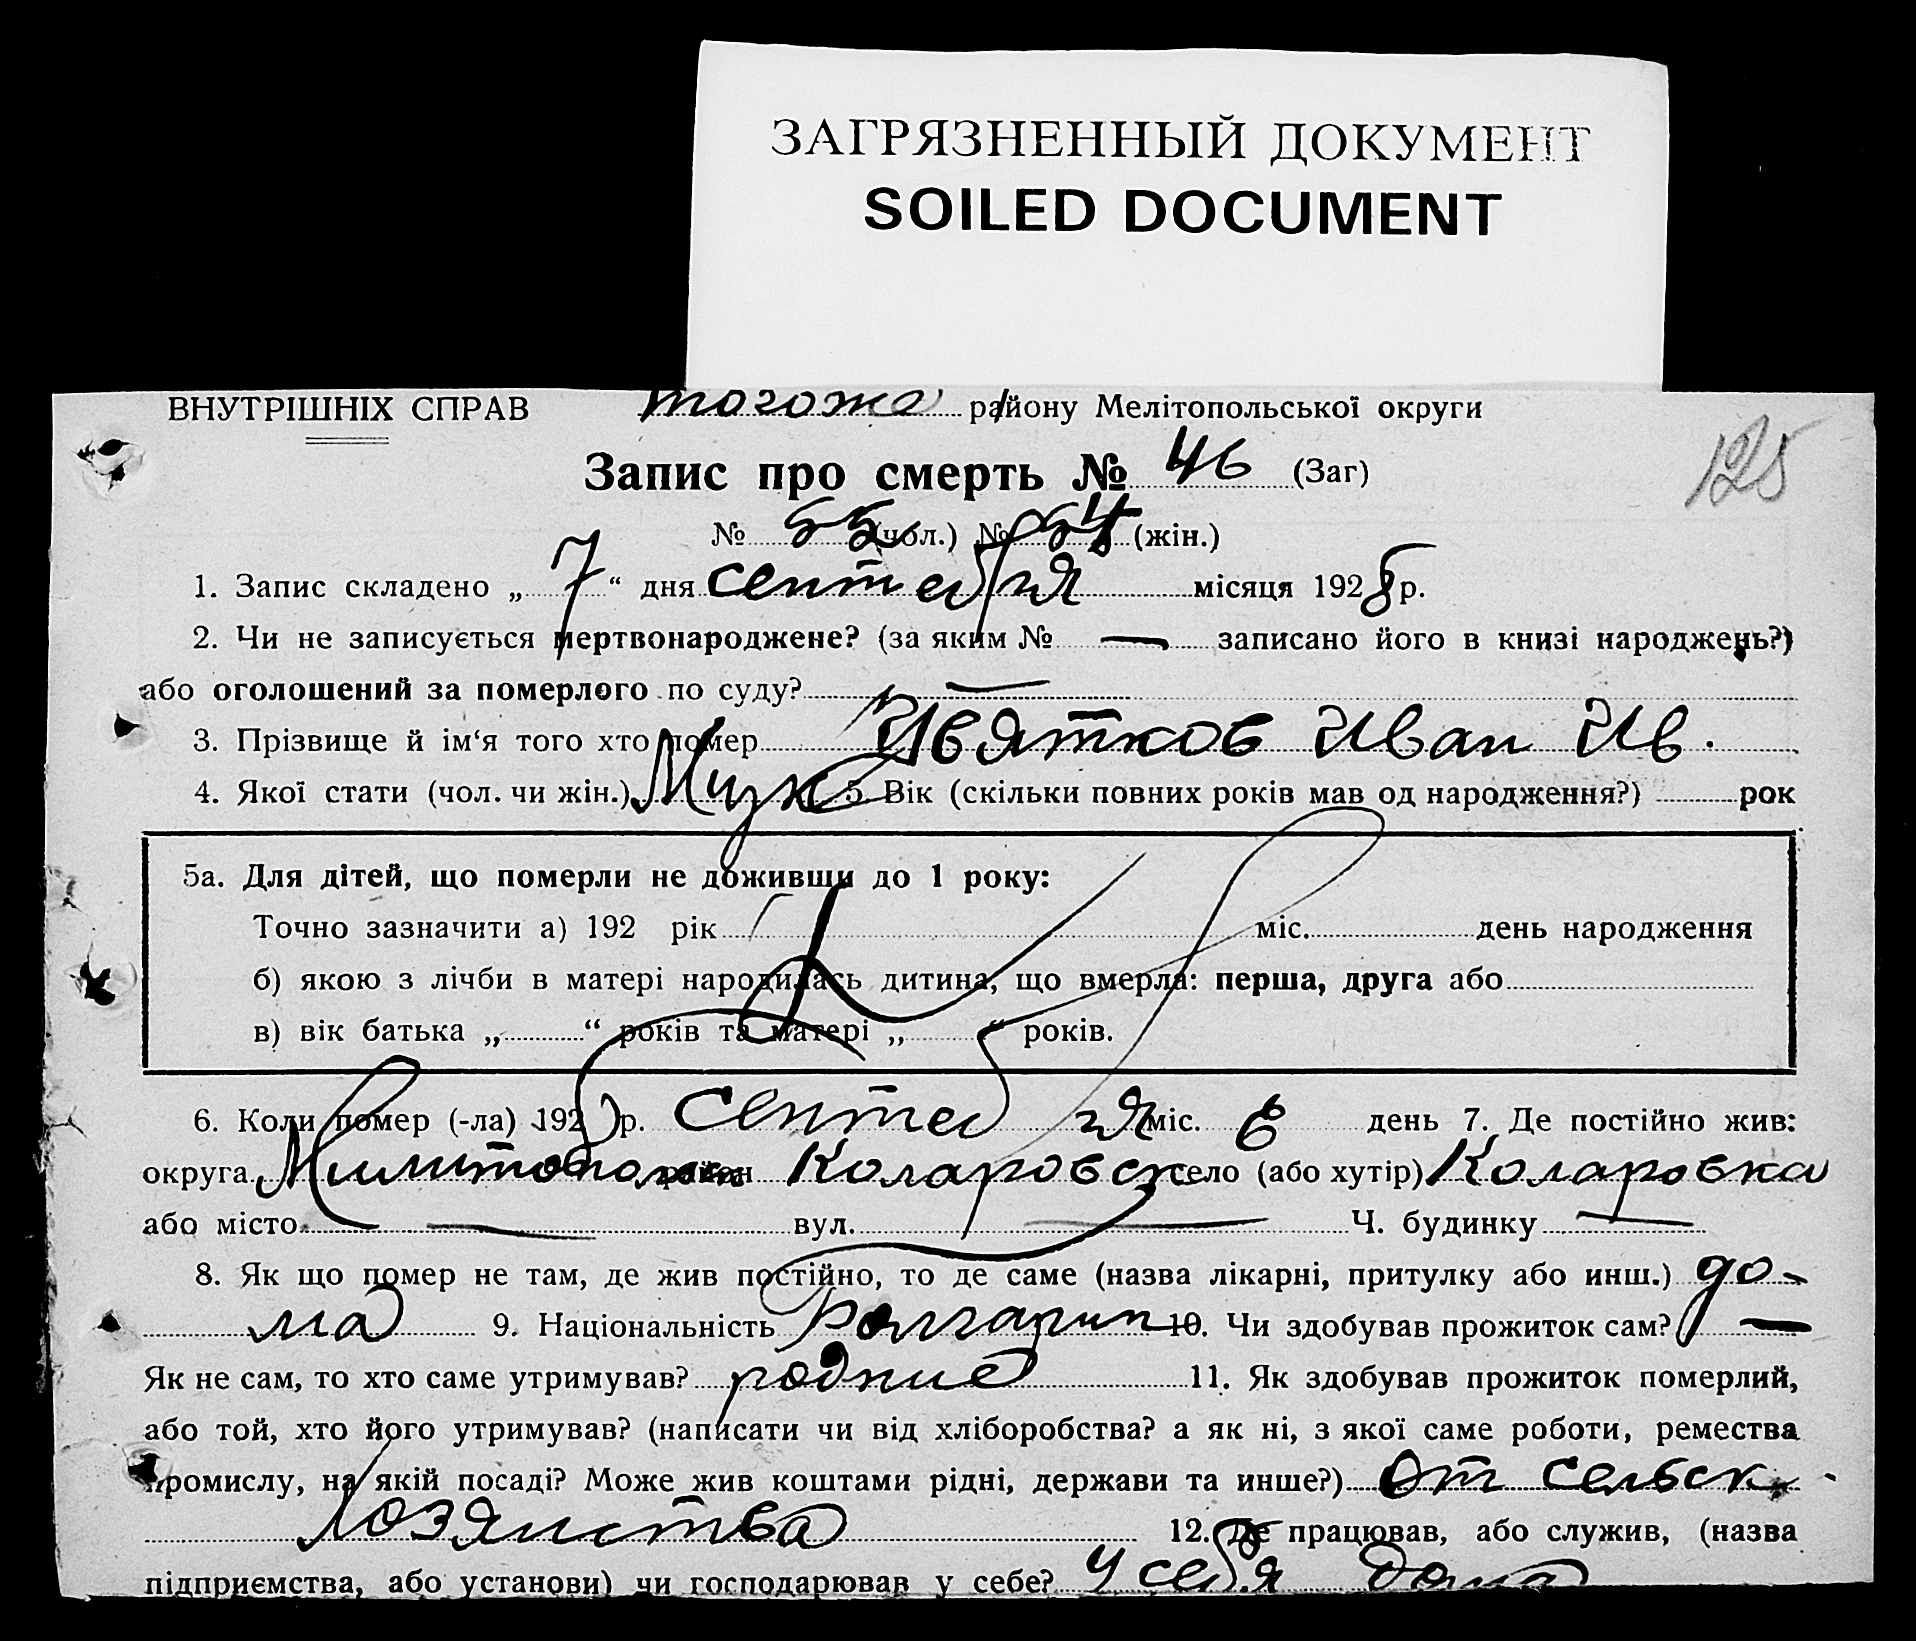 ЗАГРЯЗНЕННЫЙ ДОКУМЕНТ
SOILED DOCUMENT
ВНУТРІШНІХ СПРАВ тогоже району Мелітопольської округи
125
Запис про смерть № 46 (Заг)
№ 55 (чол.) № 54 (жін.)
1. Запис складено „ 7 “ дня сентября місяця 1928 р.
2. Чи не записується мертвонароджене? (за яким № — записано його в книзі народжень?)
або оголошений за померлого по суду? —
3. Прізвище й ім‘я того хто помер Цвятков Иван Ив.
4. Якої стати (чол. чи жін.) Муж 5. Вік (скільки повних років мав од народження?) рок
5а. Для дітей, що померли не доживши до 1 року:
Точно зазначити а) 192 рік міс. день народження
б) якою з лічби в матері народилась дитина, що вмерла: перша, друга або
в) вік батька „ “ років та матері „ “ років.
6. Коли помер (-ла) 192 р. сентября міс. 6 день 7. Де постійно жив:
округа район Коларовск село (або хутір) Коларовка
або місто — вул. — Ч. будинку —
8. Як що помер не там, де жив постійно, то де саме (назва лікарні, притулку або инш.) до-
ма 9. Національність Болгарин 10. Чи здобував прожиток сам? —
Як не сам, то хто саме утримував? родние 11. Як здобував прожиток померлий,
або той, хто його утримував? (написати чи від хліборобства? а як ні, з якої саме роботи, ремества
промислу, на якій посаді? Може жив коштами рідні, держави та инше?) От сельск.
хозяиства 12. Де працював, або служив, (назва
підприємства, або установи) чи господарював у себе? у себя дома